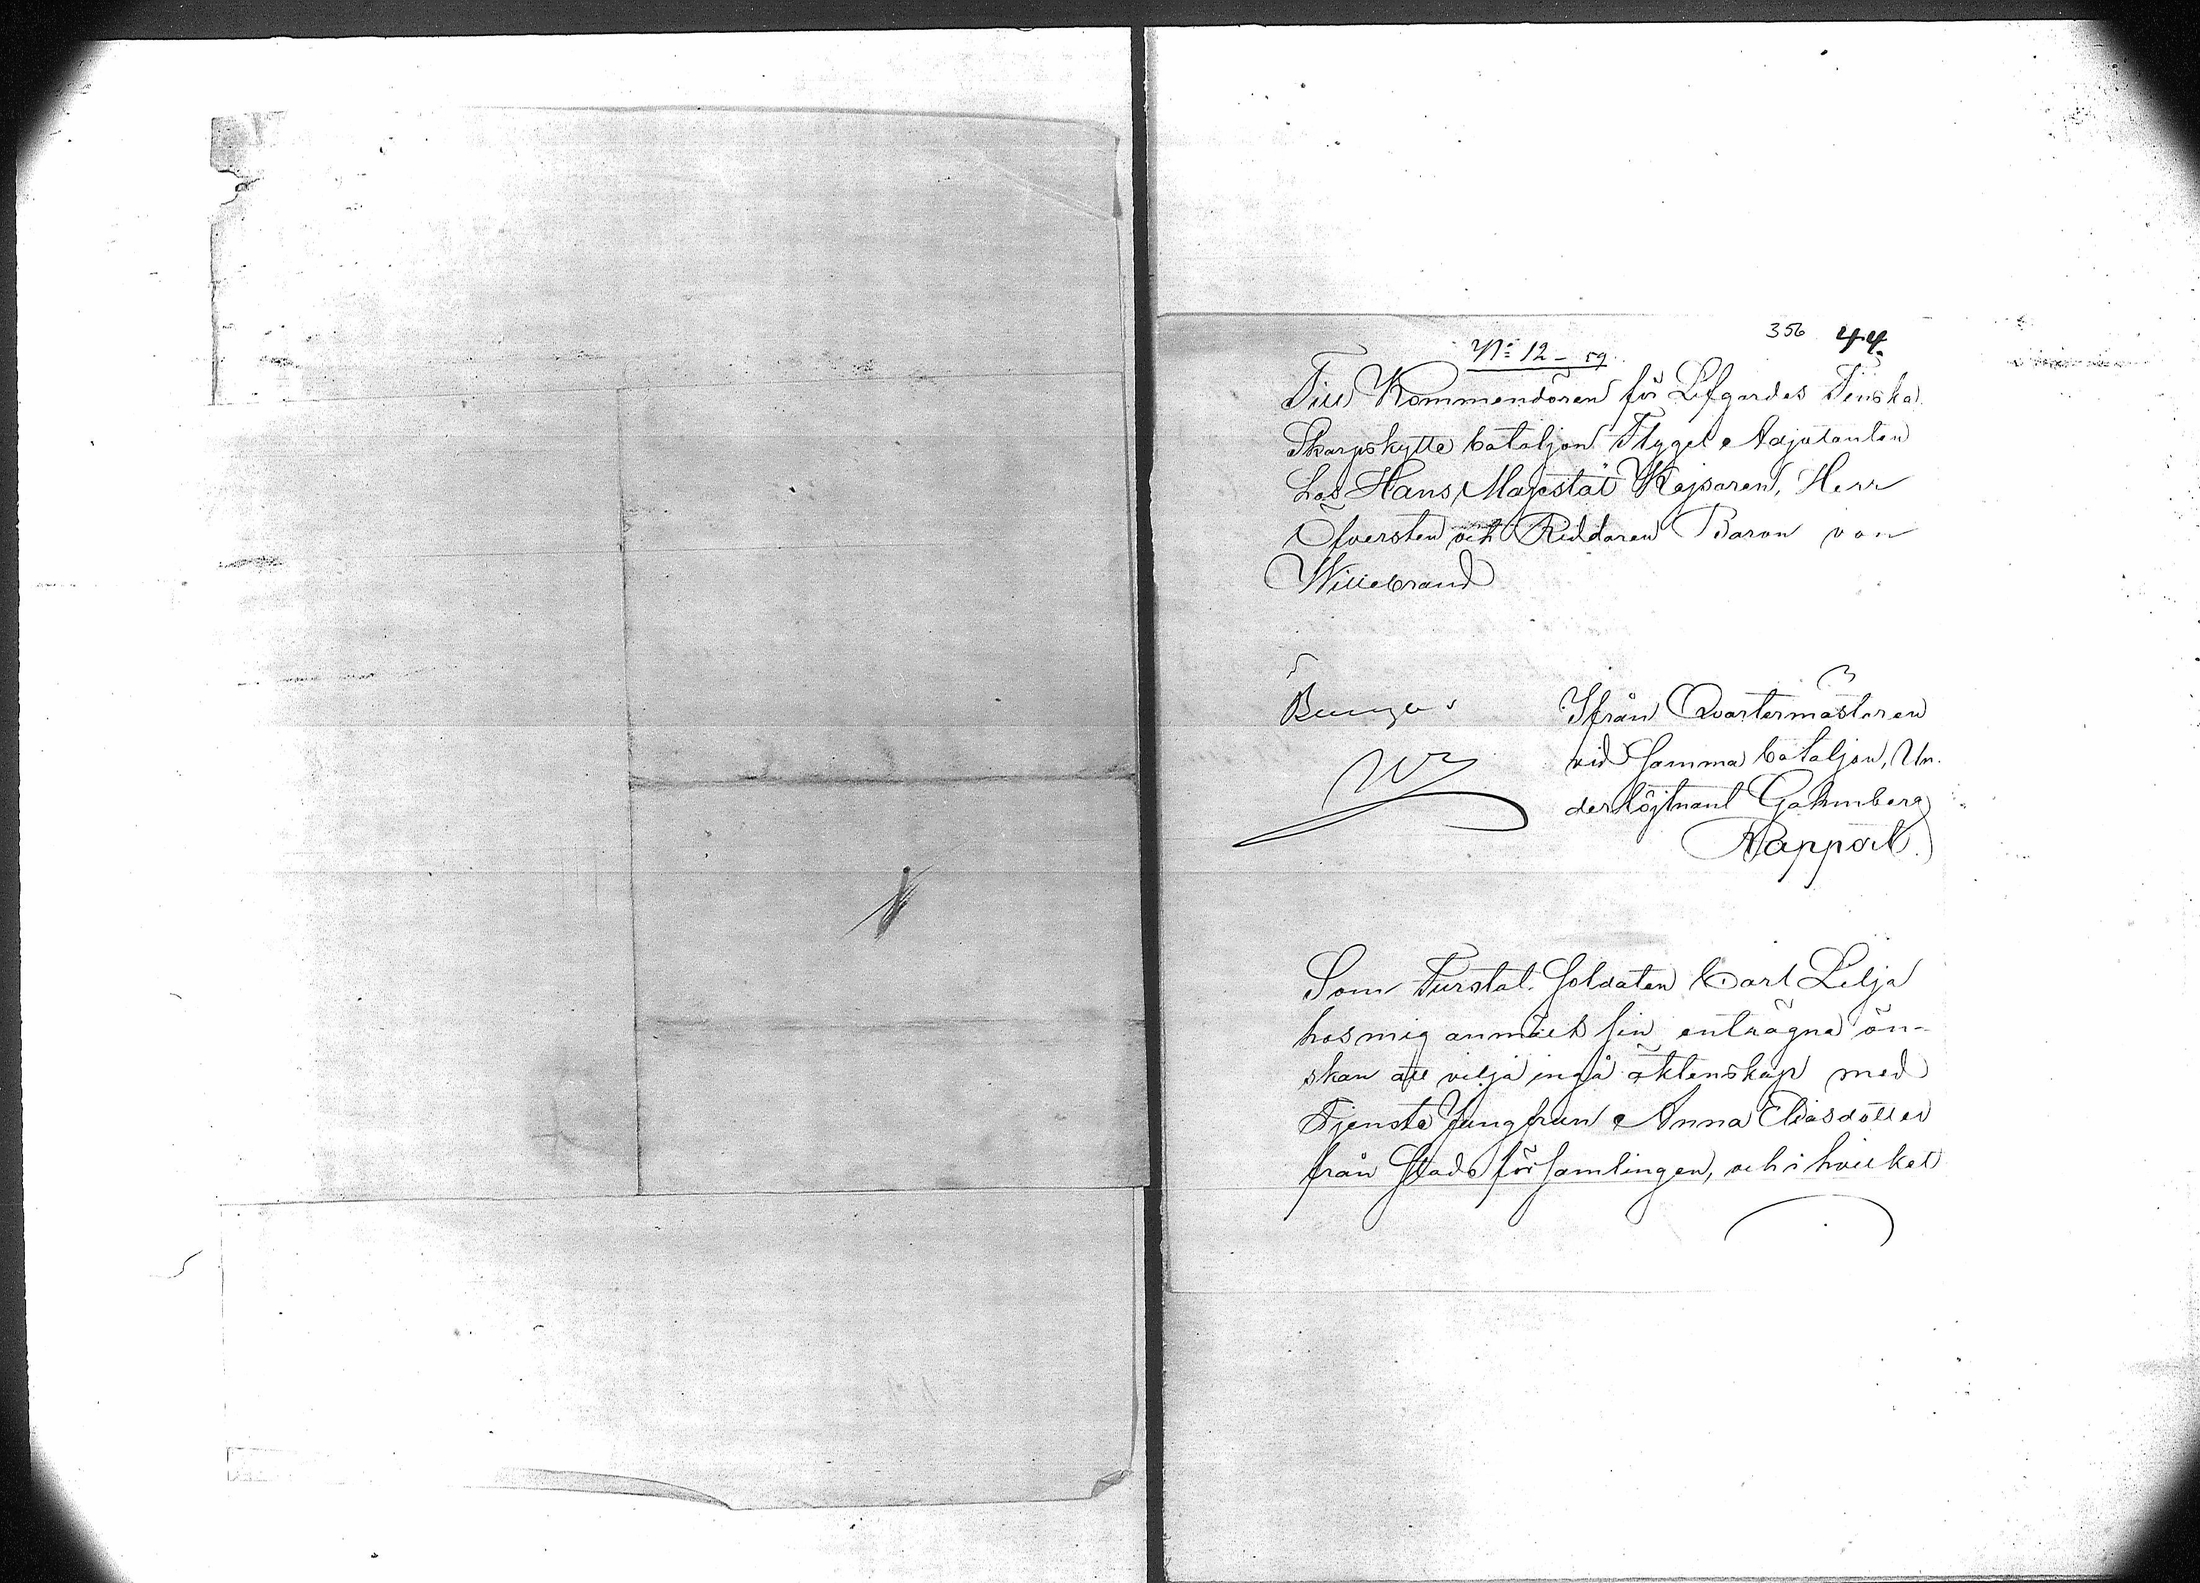 356 44.
No 12 – 59.
Till Kommendören för Lifgardes Finska
Skarpskytte bataljon Flygel Adjutanten
hos Hans Majestät Kejsaren, Herr
Öfversten och Riddaren Baron von
Willebrand
Ifrån Qvartermästaren
vid samma bataljon, Un-
derlöjtnant Gahmberg
Rapport.
Som Furstat. Soldaten Carl Lilja
hos mig anmält sin enträgna ön-
skan att vilja ingå äktenskap med
Tjenste Jungfrun Anna Eliasdotter
från Stads församlingen, och i hvilket